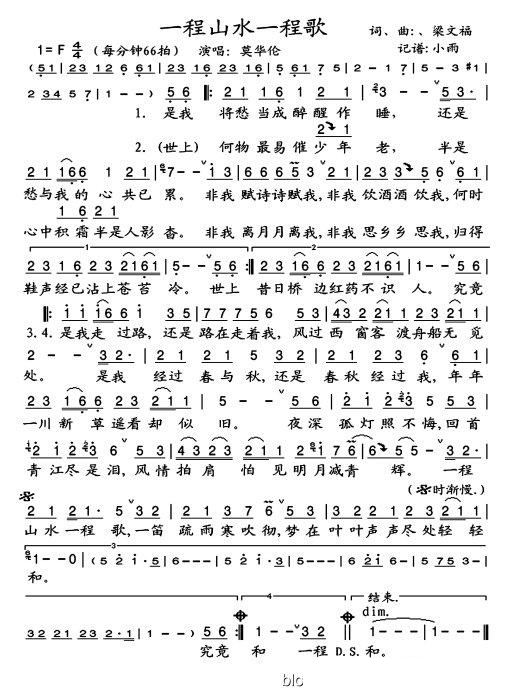 一程山水一程歌
词、曲:、梁文福
1=F 4/4 (每分钟66拍) 演唱: 莫华伦 记谱:小雨
(51| 23 12 6 61| 23 16 23 16| 23 16 23 5| 61 75| 2--17| 5--3 #1|
2 34 5 7| 1--) 5 6 ‖: 21 16 1 21| 3-- 5 3·|
1. 是我 将愁当成醉醒作 睡, 还是
2 1
2. (世上) 何物最易催少年 老, 半是
21 166 1 21| 7-- 13| 66 665 3 56| 21 23 5 56| 61
愁与我的心共已 累。 非我 赋诗诗赋我,非我 饮酒酒饮我,何时
1 6 21
心中积霜半是人影 杳。 非我 离月月离我,非我 思乡乡思我,归得
1
2
23 16 23 2161| 5-- 56 :‖ 23 166 23 2161| 5-- 56|
鞋声经已沾上苍苔 冷。 世上 昔日桥边红药不识 人。 究竟
‖: 11 166 13| 35| 77 756 53| 43 221 221 53|
3.4. 是我走 过路,还是路在走着我, 风过西窗客 渡舟船无觅
2-- 32·| 21 21 52| 21 23 6 61|
处。 是我 经过 春与秋,还是 春秋经过我,年年
23 166 23 21| 5-- 5| 21 23 53 53|
一川新 草遥看却似 旧。 夜深 孤灯照不悔,回首
21 23 6 53| 4323 21 221 76| 6 5 5 32·|
青江尽是泪,风情拍肩 怕见明月减青 辉。 一程
(𝄋时渐慢.)
𝄋
21 21· 5 32| 21 37 6 53| 21 23 23 221|
山水一程 歌,一笛 疏雨寒吹彻,梦在叶叶声声尽处轻轻
3
1--0| (5 21·5| 5 13·5| 6 216·| 5 75 3·|
和。
4
结束.
dim.
32 21 23 2·1| 1--) 56 :‖ 1-- 32 ‖ 1---| 1---‖
究竟 和 一程 D.S. 和。
blc